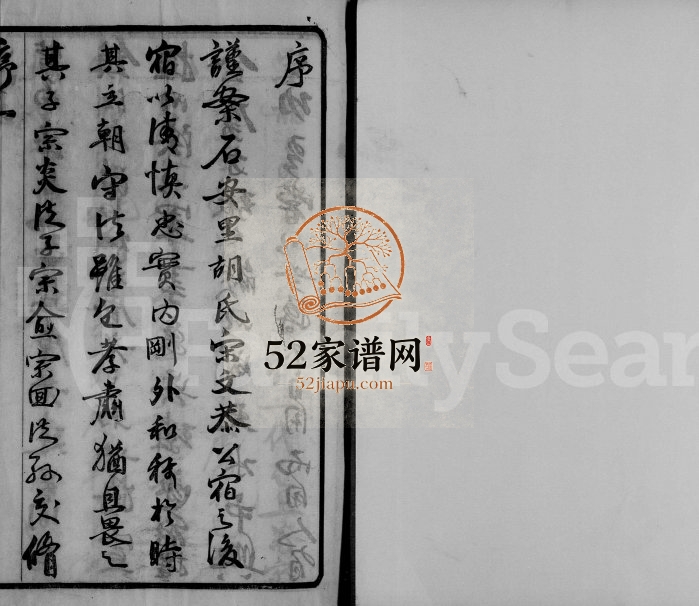 序
謹案石安里胡氏宋文恭公宿之後
宿以清慎忠實內剛外和稱於時
其立朝守法雖包孝肅猶且畏之
其子宗炎從子宗愈宗回從孫交脩
序一
52家谱网
52jiapu.com
FamilySear